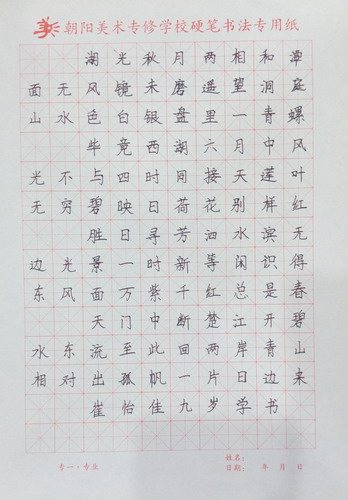 朝阳美术专修学校硬笔书法专用纸
湖光秋月两相和潭
面无风镜未磨遥望洞庭
山水色白银盘里一青螺
毕竟西湖六月中风
光不与四时同接天莲叶
无穷碧映日荷花别样红
胜日寻芳泗水滨无
边光景一时新等闲识得
东风面万紫千红总是春
天门中断楚江开碧
水东流至此回两岸青山
相对出孤帆一片日边来
崔怡佳九岁学书
专一·专业
姓名：
日期： 年 月 日